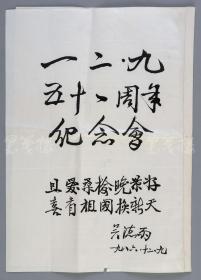 一二·九
五十一周年
纪念會
且爱桑榆晚景好
喜看祖國换新天
吴德雨
九八六·十二·九